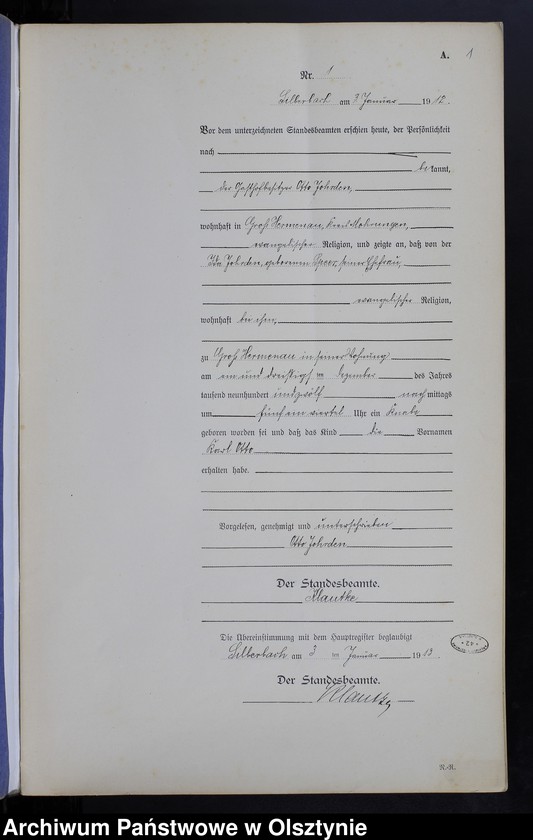 A. 1
Nr. 1
Silberbach am 3 Januar 1912.
Vor dem unterzeichneten Standesbeamten erschien heute, der Persönlichkeit
nach
bekannt,
der Gasthofbesitzer Otto Johrden,
wohnhaft in Groß Hermenau, Kreis Mohrungen,
evangelischer Religion, und zeigte an, daß von der
Ida Johrden, geborenen seiner Ehefrau,
evangelischer Religion,
wohnhaft bei ihm,
zu Groß Hermenau in seiner Wohnung
am ein und dreißigsten Dezember des Jahres
tausend neunhundert undzwölf nachmittags
um fünf ein viertel Uhr ein Knabe
geboren worden sei und daß das Kind die Vornamen
Karl Otto
erhalten habe.
Vorgelesen, genehmigt und unterschrieben
Otto Johrden
Der Standesbeamte.
Klautke
Die Übereinstimmung mit dem Hauptregister beglaubigt
Silberbach am 3 ten Januar 1913.
Der Standesbeamte.
Klautke
N.-R.
Archiwum Państwowe w Olsztynie